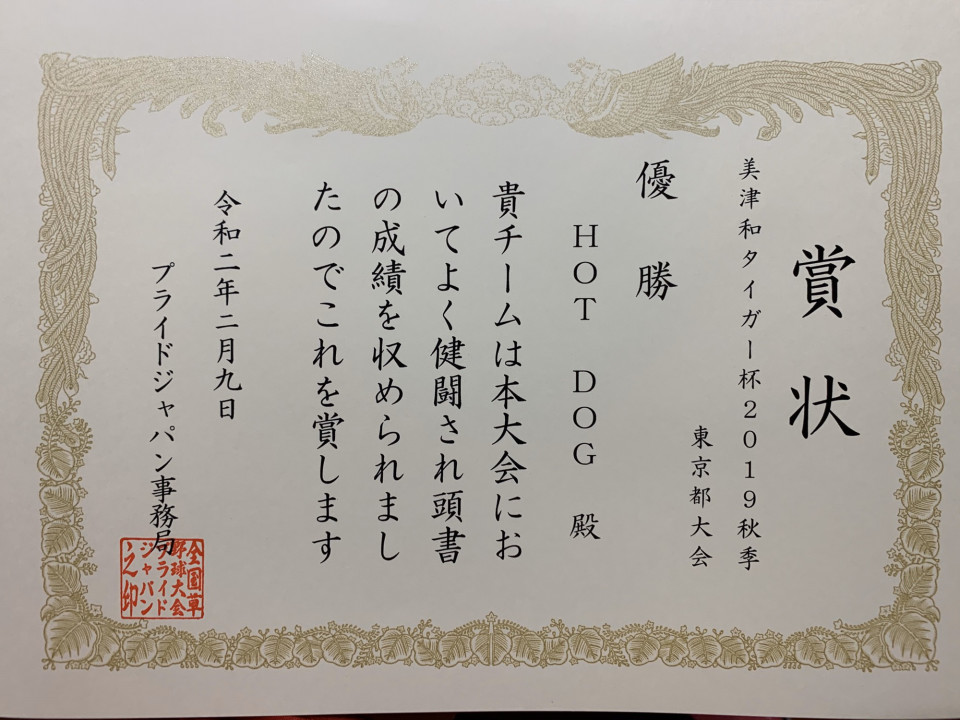 賞状
美津和タイガー杯2019秋季
東京都大会
優勝
HOT DOG 殿
貴チームは本大会にお
いてよく健闘され頭書
の成績を収められまし
たのでこれを賞します
令和二年二月九日
プライドジャパン事務局
全国草
野球大会
プライド
ジャパン
之印